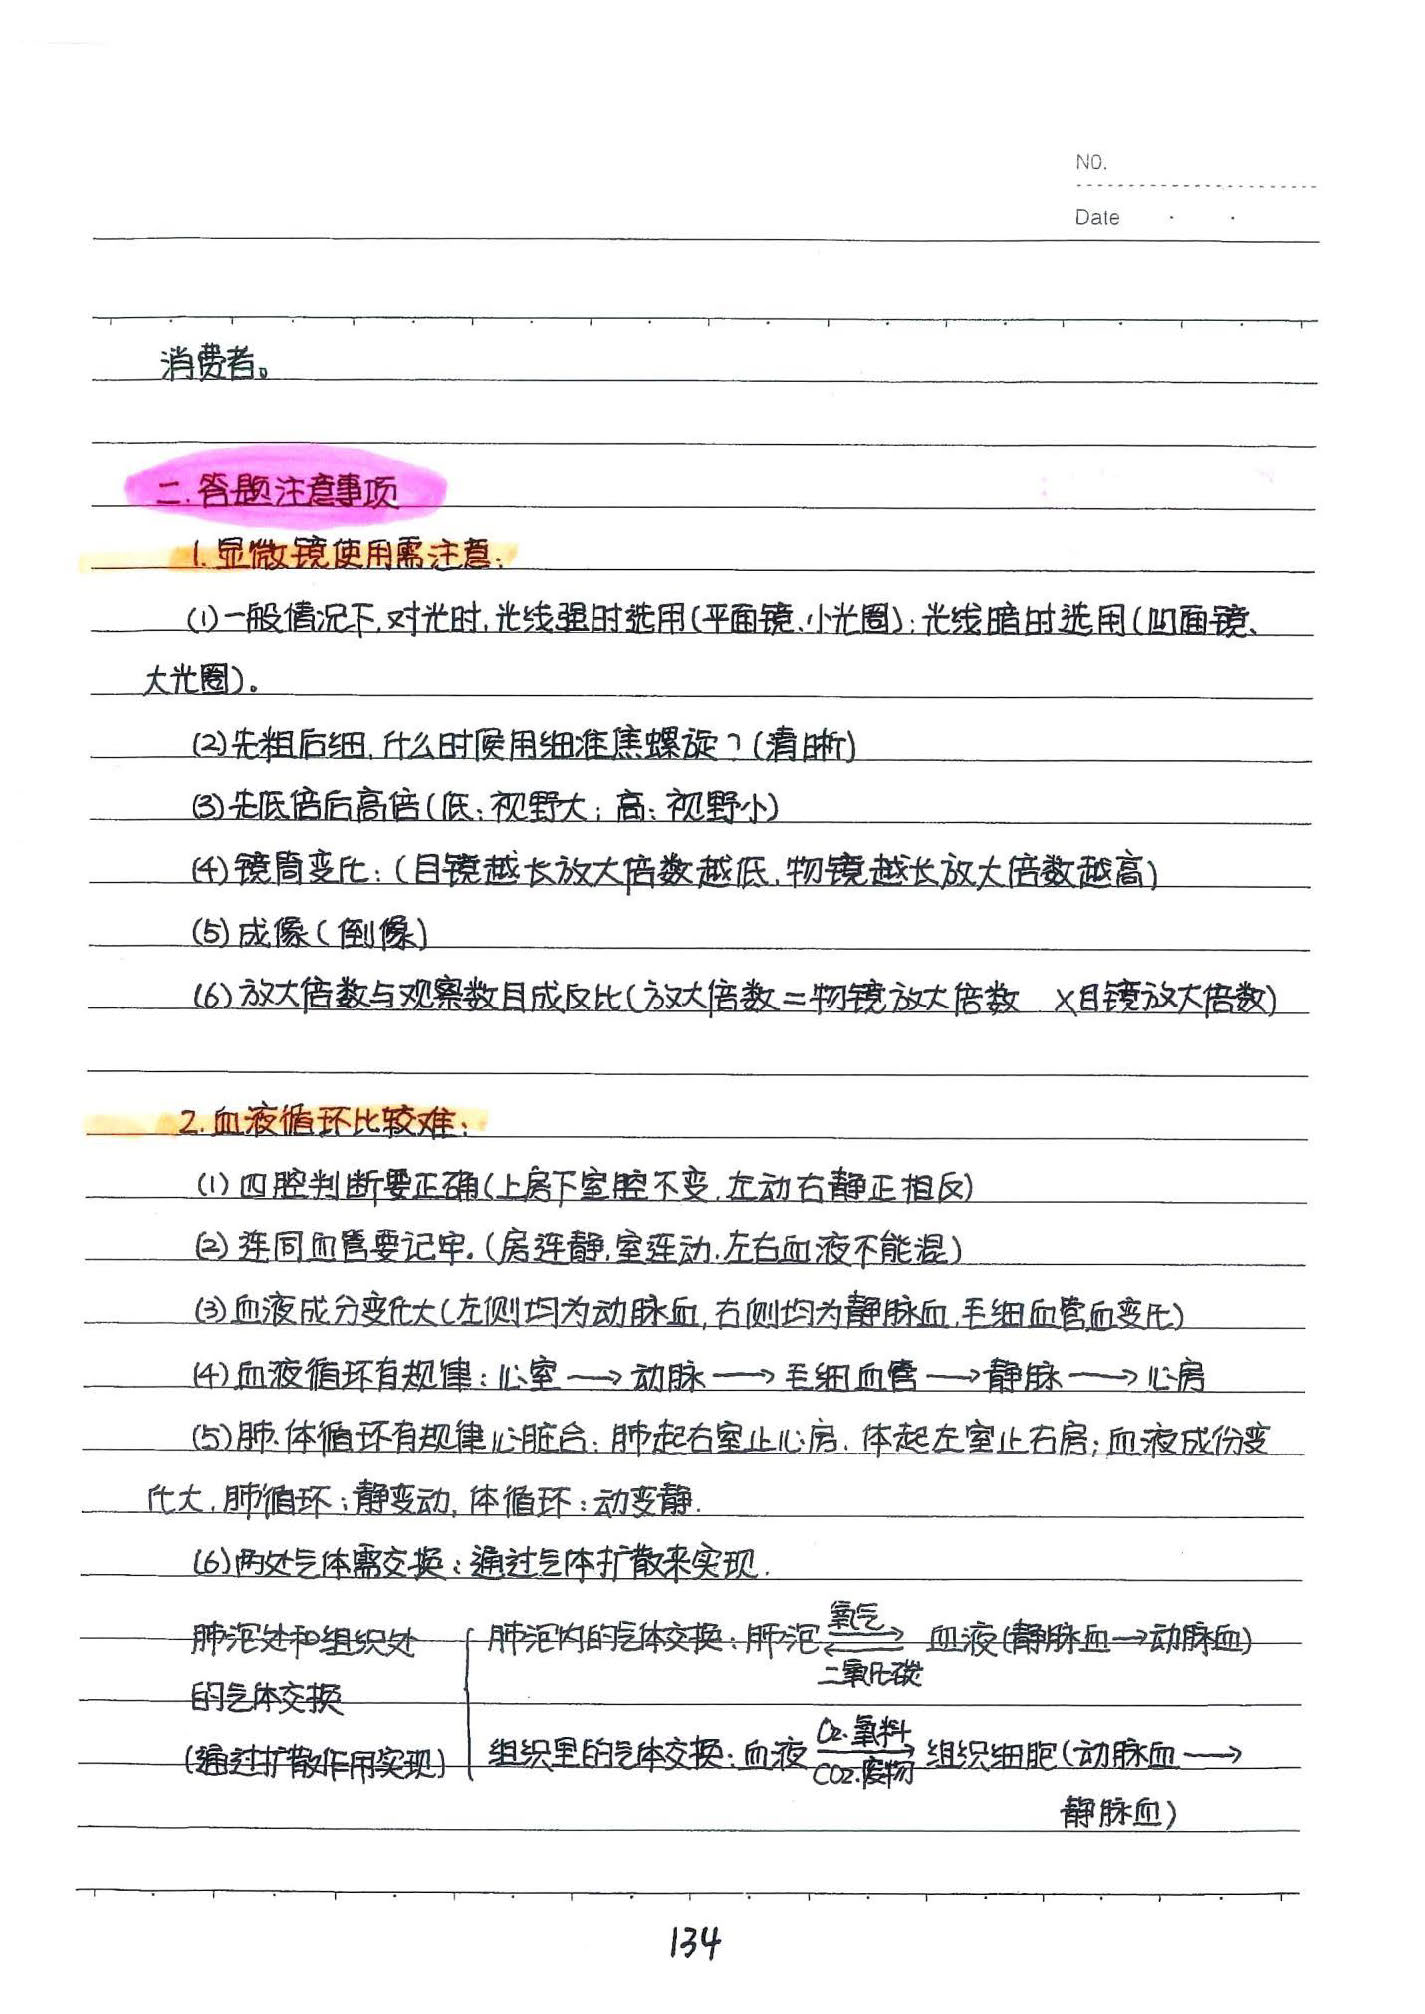 NO.
Date
消费者。
二.答题注意事项
1.显微镜使用需注意:
(1)一般情况下,对光时,光线强时选用(平面镜、小光圈);光线暗时选用(凹面镜、
大光圈)。
(2)先粗后细,什么时候用细准焦螺旋?(清晰)
(3)先低倍后高倍(低:视野大;高:视野小)
(4)镜筒变化:(目镜越长放大倍数越低,物镜越长放大倍数越高)
(5)成像(倒像)
(6)放大倍数与观察数目成反比(放大倍数=物镜放大倍数 ×目镜放大倍数)
2.血液循环比较难:
(1)四腔判断要正确(上房下室腔不变,左动右静正相反)
(2)连同血管要记牢.(房连静,室连动,左右血液不能混)
(3)血液成分变化大(左侧均为动脉血,右侧均为静脉血,毛细血管血变化)
(4)血液循环有规律:心室→动脉→毛细血管→静脉→心房
(5)肺、体循环有规律心脏合:肺起右室止心房,体起左室止右房;血液成份变
化大,肺循环:静变动,体循环:动变静.
(6)两处气体需交换:通过气体扩散来实现.
肺泡处和组织处
的气体交换
(通过扩散作用实现)
肺泡内的气体交换:肺泡 氧气 ⇌ 二氧化碳 血液(静脉血→动脉血)
组织里的气体交换:血液 O2.氧料 ⇌ CO2.废物 组织细胞(动脉血→
静脉血)
134